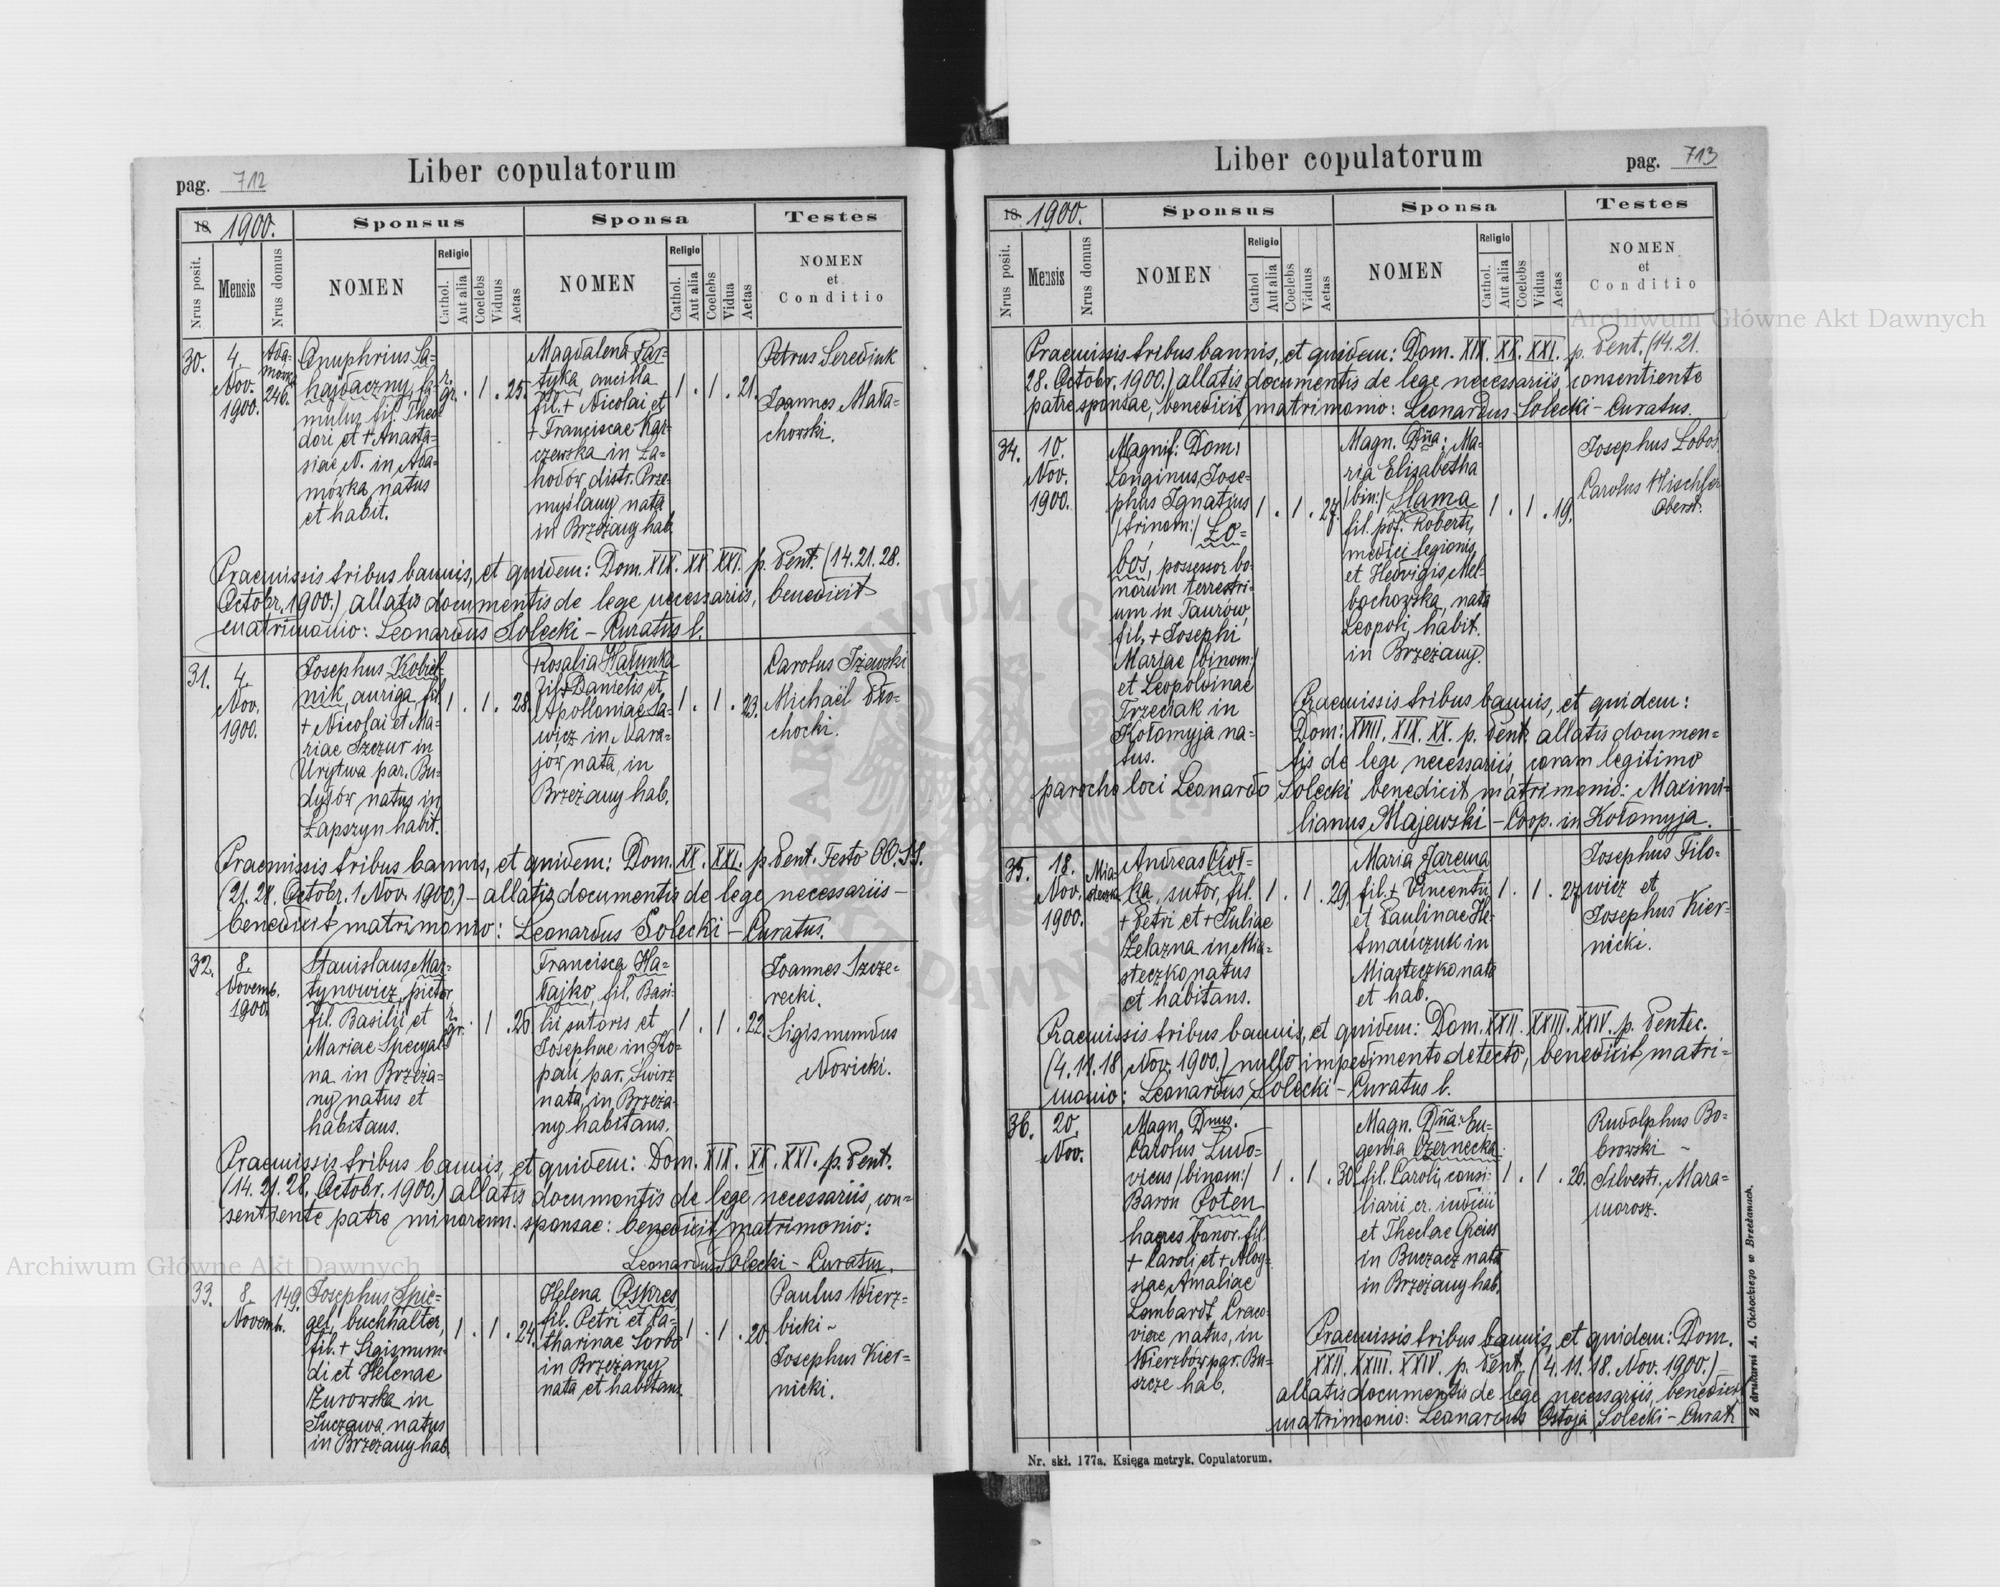 pag. 712
Liber copulatorum
18 1900.
Sponsus
Sponsa
Testes
Nrus posit.
Mensis
Nrus domus
NOMEN
Religio
Cathol.
Aut alia
Coelebs
Viduus
Aetas
NOMEN
Religio
Cathol.
Aut alia
Coelebs
Vidua
Aetas
NOMEN
et
Conditio
30.
4.
Nov.
1900.
Ada-
mówka
246.
Onuphrius Sa-
hajdaczny, fa-
mulus, fil. Theo
dori et + Anasta-
siae N. in Ada-
mówka natus
et habit.
r.
gr.
1
25.
Magdalena
tyka, ancilla
fil. + Nicolai et
+ Franciscae Kar-
czewska in Za-
hodów, distr. Prze-
myślany nata
in Brzeżany hab.
1
1
21.
Petrus Serediuk
Joannes Mała-
chowski.
Praemissis tribus bannis, et quidem: Dom. XIX. XX. XXI. p. Pent. (14. 21. 28.
Octobr. 1900.) allatis documentis de lege necessariis, benedicit
matrimonio: Leonardus Solecki - Curatus l.
31.
4.
Nov.
1900.
Josephus Kobel-
nik, auriga, fil.
+ Nicolai et Ma-
riae Szczur in
Urytwa par. Bu-
dyłów natus in
Łapszyn habit.
1
1
28.
Rosalia Hałunka
fil. + Danielis et
Apolloniae Sa-
wicz in Nara-
jów nata, in
Brzeżany hab.
1
1
23.
Carolus Iżewski
Michaël Pro-
chocki.
Praemissis tribus bannis, et quidem: Dom. XX. XXI. p. Pent. Festo OO. SS.
(21. 28. Octobr. 1 Nov. 1900.) - allatis documentis de lege necessariis -
benedicit matrimonio: Leonardus Solecki - Curatus.
32.
8.
Novemb.
1900.
Stanislaus Mar-
tynowicz, pictor
fil. Basilii et
Mariae Specyal-
na in Brzeża-
ny natus et
habitans.
r.
gr.
1
Francisca Ha-
łajko, fil. Basi-
lii sutoris et
Josephae in Ko-
pań par. Świrz
nata, in Brzeża-
ny habitans.
1
1
22.
Joannes Szcze-
recki.
Sigismundus
Nowicki.
Praemissis tribus bannis, et quidem: Dom. XIX. XX. XXI. p. Pent.
(14. 21. 28. Octobr. 1900.) allatis documentis de lege necessariis, con-
sentiente patre minorenn. sponsae: benedicit matrimonio:
Leonardus Solecki - Curatus.
33.
8.
Novemb.
149.
Josephus Spie-
gel, buchhälter,
fil. + Sigismun-
di et Helenae
Żurowska in
Suczawa natus
in Brzeżany hab.
1
1
24.
Helena Oskres,
fil. Petri et Ca-
tharinae Sorbo
in Brzeżany
nata et habitans
1
1
20.
Paulus Wierz-
bicki -
Josephus Kier-
nicki.
Liber copulatorum
pag. 713
18 1900.
Sponsus
Sponsa
Testes
Nrus posit.
Mensis
Nrus domus
NOMEN
Religio
Cathol
Aut alia
Coelebs
Viduus
Aetas
NOMEN
Religio
Cathol.
Aut alia
Coelebs
Vidua
Aetas
NOMEN
et
Conditio
Praemissis tribus bannis, et quidem: Dom. XIX. XX. XXI. p. Pent. (14. 21.
28. Octobr. 1900.) allatis documentis de lege necessariis, consentiente
patre sponsae, benedicit matrimonio: Leonardus Solecki - Curatus.
34.
10.
Nov.
1900.
Magnif. Dom.
Longinus Jose-
phus Ignatius
/trinom:/ Ło-
boś, possessor bo-
norum terrestri-
um in Taurów,
fil. + Josephi
Mariae /binom:/
et Leopoldinae
Trzeciak in
Kołomyja na-
tus.
1
1
27.
Magn. Dña: Ma-
ria Elisabetha
/bin:/ Slama
fil. pof. Roberti,
medici legionis,
et Hedvigis Mel-
bachowska, nata
Leopoli, habit.
in Brzeżany.
1
1
19.
Josephus Łoboś
Carolus Hischler
Oberst.
Praemissis tribus bannis, et quidem:
Dom: XVIII. XIX. XX. p. Pent. allatis documen-
tis de lege necessariis, coram legitimo
parocho loci Leonardo Solecki benedicit matrimonio: Maximi-
lianus Majewski - Coop. in Kołomyja.
35.
18.
Nov.
1900.
Mia-
steczko
Andreas Cioł-
ka, sutor, fil.
+ Petri et + Juliae
Żelazna in Mia-
steczko natus
et habitans.
1
1
29.
Maria Jarema
fil. + Vincentii
et Paulinae He-
tmańczuk in
Miasteczko nata
et hab.
1
1
27.
Josephus Filo-
wicz et
Josephus Kier-
nicki.
Praemissis tribus bannis, et quidem: Dom. XXII. XXIII. XXIV. p. Pentec.
(4. 11. 18. Nov. 1900.) nullo impedimento detecto, benedicit matri-
monio: Leonardus Solecki - Curatus l.
36.
20.
Nov.
Magn. Dnus.
Carolus Ludo-
vicus /binom:/
Baron Poten
haeres bonor. fil.
+ Caroli et + Aloy-
siae Amaliae
Lombardt, Craco-
viae natus, in
Wierzbów par. Bu-
szcze hab.
1
1
30.
Magn. Dña: Eu-
genia Czernecka
fil. Caroli, consi-
liarii cr. indicii
et Theclae Greiss
in Buczacz nata
in Brzeżany hab.
1
1
26.
Rudolphus Bo-
browski -
Silvestr. Mara-
morosz.
Praemissis tribus bannis, et quidem: Dom.
XXII. XXIII. XXIV. p. Pent. (4. 11. 18. Nov. 1900.) -
allatis documentis de lege necessariis, benedicit
matrimonio: Leonardus Ostoja Solecki - Curat.
Nr. skł. 177a. Księga metryk. Copulatorum.
Z drukarni A. Cichockiego w Brzeżanach.
Archiwum Główne Akt Dawnych
Archiwum Główne Akt Dawnych